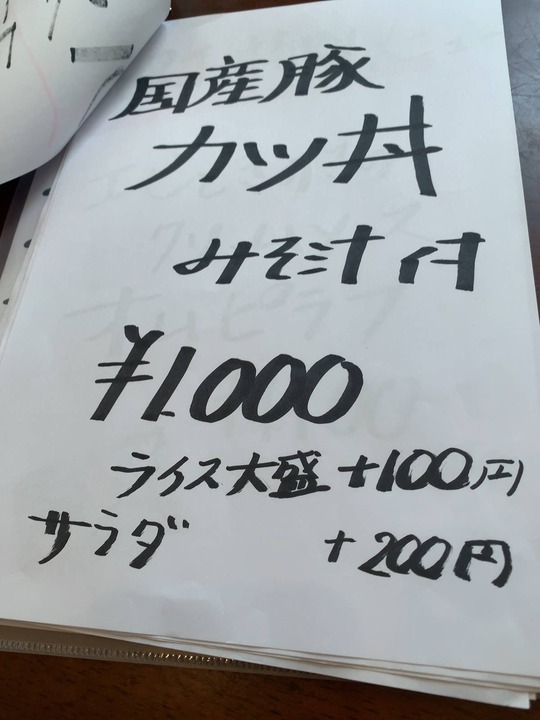 国産豚
カツ丼
みそ汁付
¥1.000
ライス大盛 +100円
サラダ +200円